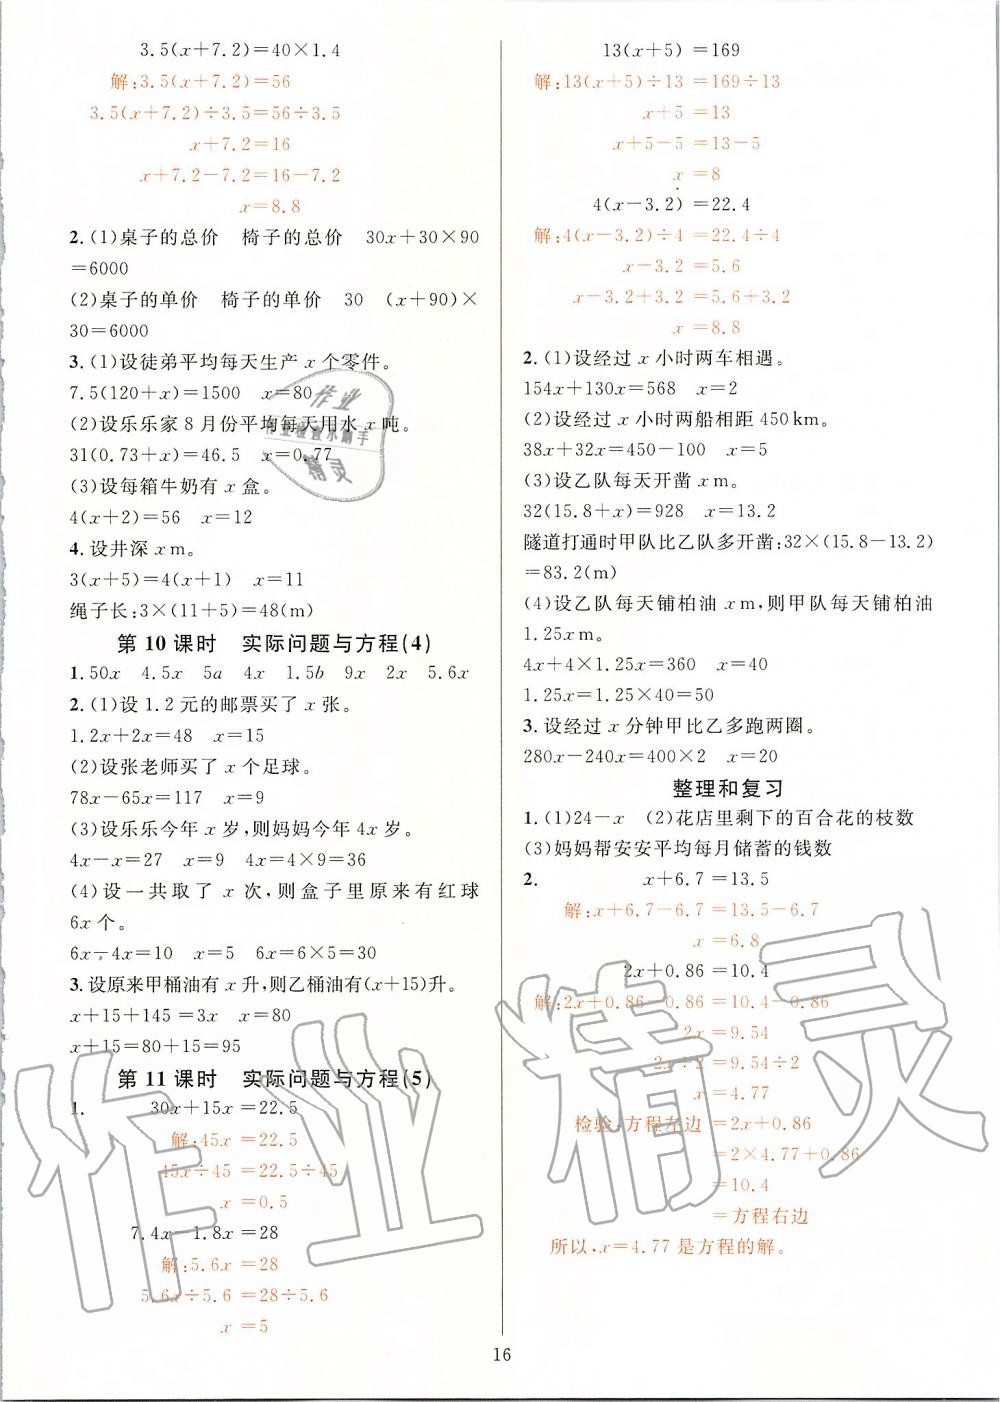 3.5(x+7.2)=40×1.4
解:3.5(x+7.2)=56
3.5(x+7.2)÷3.5=56÷3.5
x+7.2=16
x+7.2-7.2=16-7.2
x=8.8
2.(1)桌子的总价 椅子的总价 30x+30×90
=6000
(2)桌子的单价 椅子的单价 30 (x+90)×
30=6000
3.(1)设徒弟平均每天生产 x 个零件。
7.5(120+x)=1500 x=80
(2)设乐乐家 8 月份平均每天用水 x 吨。
31(0.73+x)=46.5 x=0.77
(3)设每箱牛奶有 x 盒。
4(x+2)=56 x=12
4.设井深 x m。
3(x+5)=4(x+1) x=11
绳子长:3×(11+5)=48(m)
第 10 课时 实际问题与方程(4)
1.50x 4.5x 5a 4x 1.5b 9x 2x 5.6x
2.(1)设 1.2 元的邮票买了 x 张。
1.2x+2x=48 x=15
(2)设张老师买了 x 个足球。
78x-65x=117 x=9
(3)设乐乐今年 x 岁,则妈妈今年 4x 岁。
4x-x=27 x=9 4x=4×9=36
(4)设一共取了 x 次,则盒子里原来有红球
6x 个。
6x-4x=10 x=5 6x=6×5=30
3.设原来甲桶油有 x 升,则乙桶油有(x+15)升。
x+15+145=3x x=80
x+15=80+15=95
第 11 课时 实际问题与方程(5)
1. 30x+15x=22.5
解:45x=22.5
45x÷45=22.5÷45
x=0.5
7.4x-1.8x=28
解:5.6x=28
5.6x÷5.6=28÷5.6
x=5
13(x+5)=169
解:13(x+5)÷13=169÷13
x+5=13
x+5-5=13-5
x=8
4(x-3.2)=22.4
解:4(x-3.2)÷4=22.4÷4
x-3.2=5.6
x-3.2+3.2=5.6+3.2
x=8.8
2.(1)设经过 x 小时两车相遇。
154x+130x=568 x=2
(2)设经过 x 小时两船相距 450 km。
38x+32x=450-100 x=5
(3)设乙队每天开凿 x m。
32(15.8+x)=928 x=13.2
隧道打通时甲队比乙队多开凿:32×(15.8-13.2)
=83.2(m)
(4)设乙队每天铺柏油 x m,则甲队每天铺柏油
1.25x m。
4x+4×1.25x=360 x=40
1.25x=1.25×40=50
3.设经过 x 分钟甲比乙多跑两圈。
280x-240x=400×2 x=20
整理和复习
1.(1)24-x (2)花店里剩下的百合花的枝数
(3)妈妈帮安安平均每月储蓄的钱数
2. x+6.7=13.5
解:x+6.7-6.7=13.5-6.7
x=6.8
2x+0.86=10.4
解:2x+0.86-0.86=10.4-0.86
2x=9.54
2x÷2=9.54÷2
x=4.77
检验:方程左边=2x+0.86
=2×4.77+0.86
=10.4
=方程右边
所以,x=4.77 是方程的解。
16
作业
作业检查小助手
精灵
作业精灵